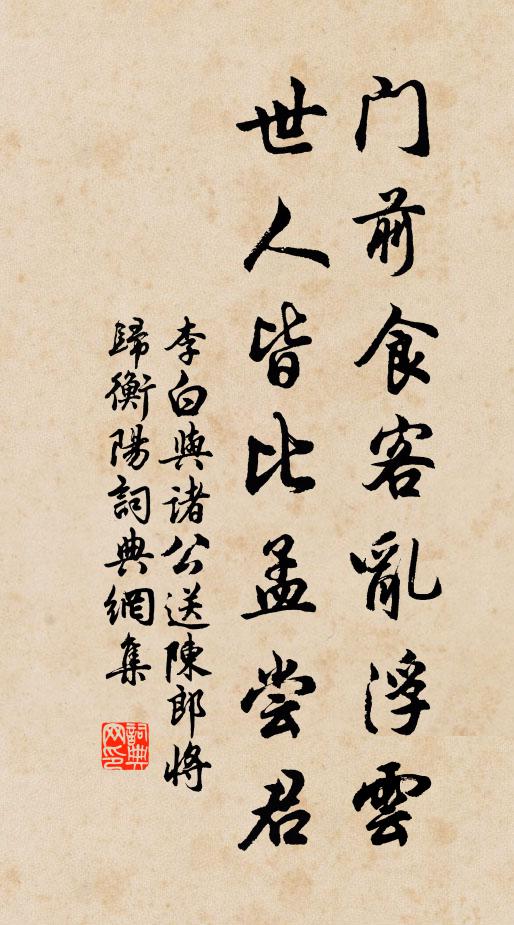 门前食客亂浮雲
世人皆比孟尝君
李白與諸公送陳郎將
歸衡陽詞典網集
詞典
网印